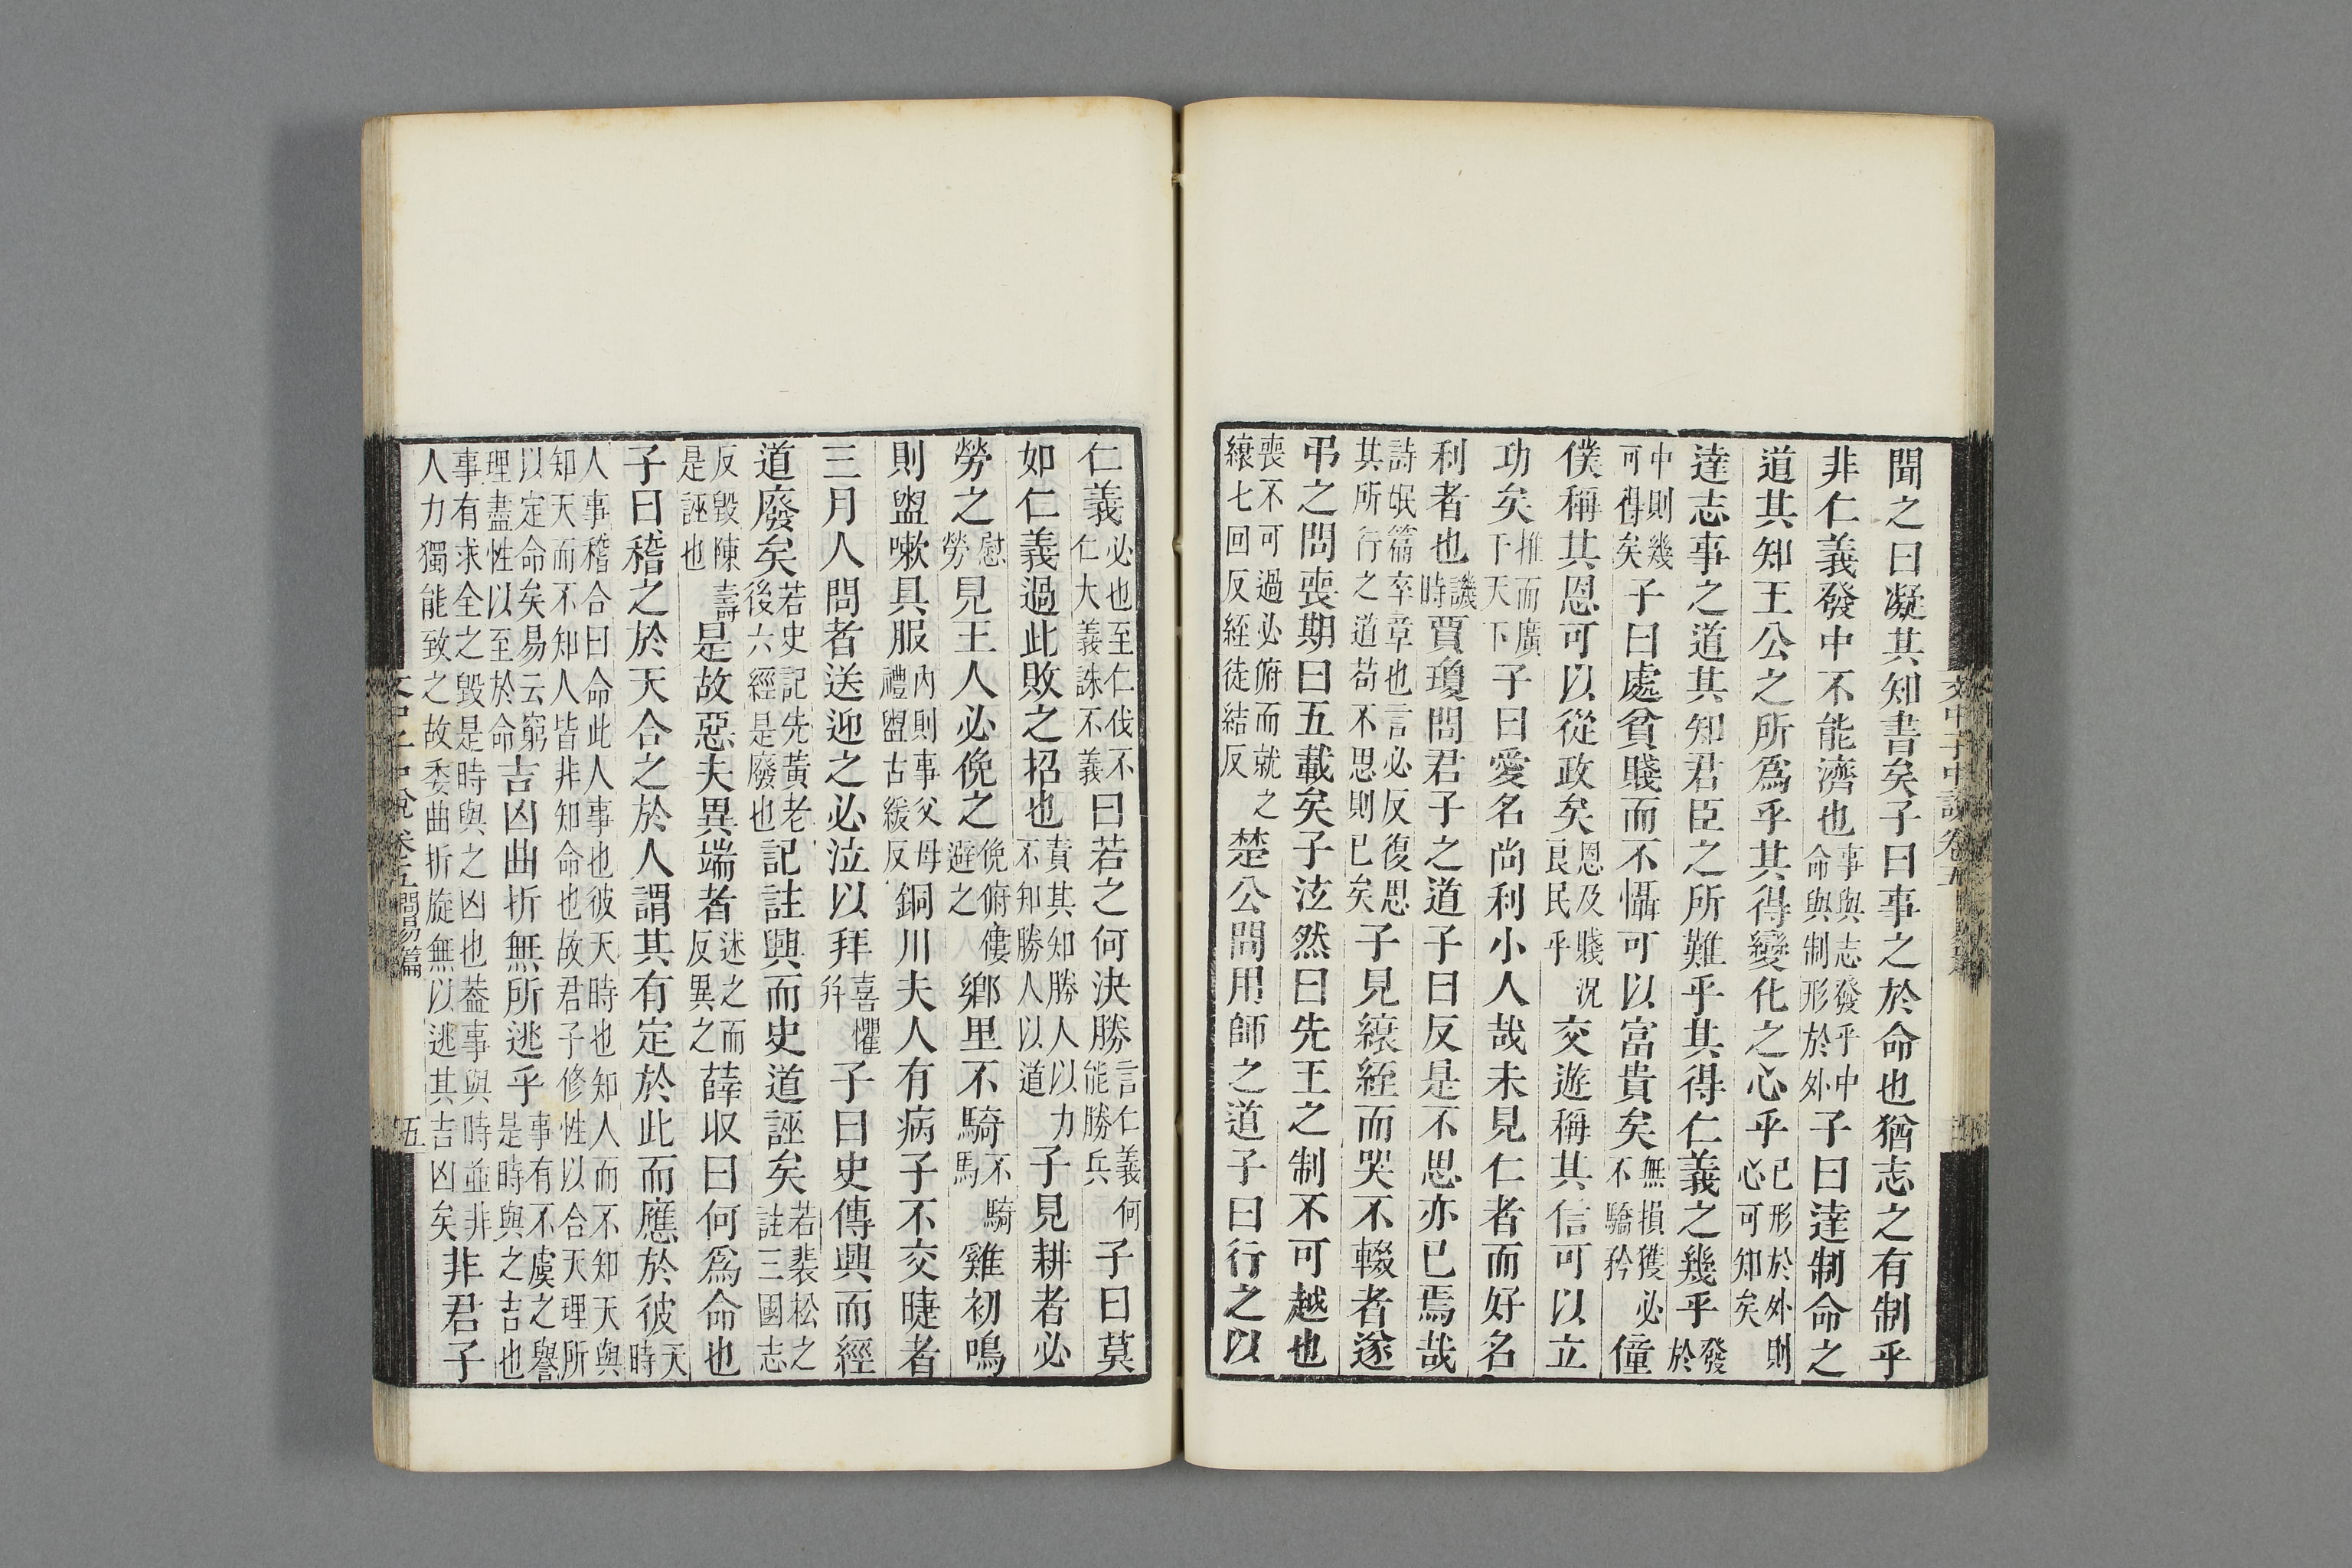 聞之曰凝其知書矣子曰事之於命也猶志之有制乎
非仁義發中不能濟也事與志發乎中命與制形於外子曰達制命之
道其知王公之所爲乎其得變化之心乎已形於外則心可知矣
達志事之道其知君臣之所難乎其得仁義之幾乎發於
中則幾可得矣子曰處貧賤而不懾可以富貴矣無損獲必不驕矜僮
僕稱其恩可以從政矣恩及賤況良民乎交遊稱其信可以立
功矣推而廣于天下子曰愛名尚利小人哉未見仁者而好名
利者也譏時賈瓊問君子之道子曰反是不思亦已焉哉
詩氓篇卒章也言必反復思其所行之道苟不思則已矣子見縗絰而哭不輟者遂
弔之問喪期曰五載矣子泫然曰先王之制不可越也
喪不可過必俯而就之縗七回反絰徒結反楚公問用師之道子曰行之以
仁義必也至仁伐不仁大義誅不義曰若之何決勝言仁義何能勝兵子曰莫
如仁義過此敗之招也賁其知勝人以力不知勝人以道子見耕者必
勞之慰勞見王人必俛之俛俯僂避之鄉里不騎不騎馬雞初鳴
則盥嗽具服內則事父母禮盥古緩反銅川夫人有病子不交睫者
三月人問者送迎之必泣以拜喜懼幷子曰史傳興而經
道廢矣若史記先黃老後六經是廢也記註興而史道誣矣若裴松之註三國志
反毀陳壽是誣也是故惡夫異端者迷之而反異之薛収曰何爲命也
子曰稽之於天合之於人謂其有定於此而應於彼天時
人事稽合曰命此人事也彼天時也知人而不知天與知天而不知人皆非知命也故君子修性以合天理所
以定命矣易云窮理盡性以至於命吉凶曲折無所逃乎事有不虞之譽是時與之吉也
事有求全之毀是時與之凶也葢事與時並非人力獨能致之故委曲折旋無以逃其吉凶矣非君子
文中子中說卷五問易篇
五